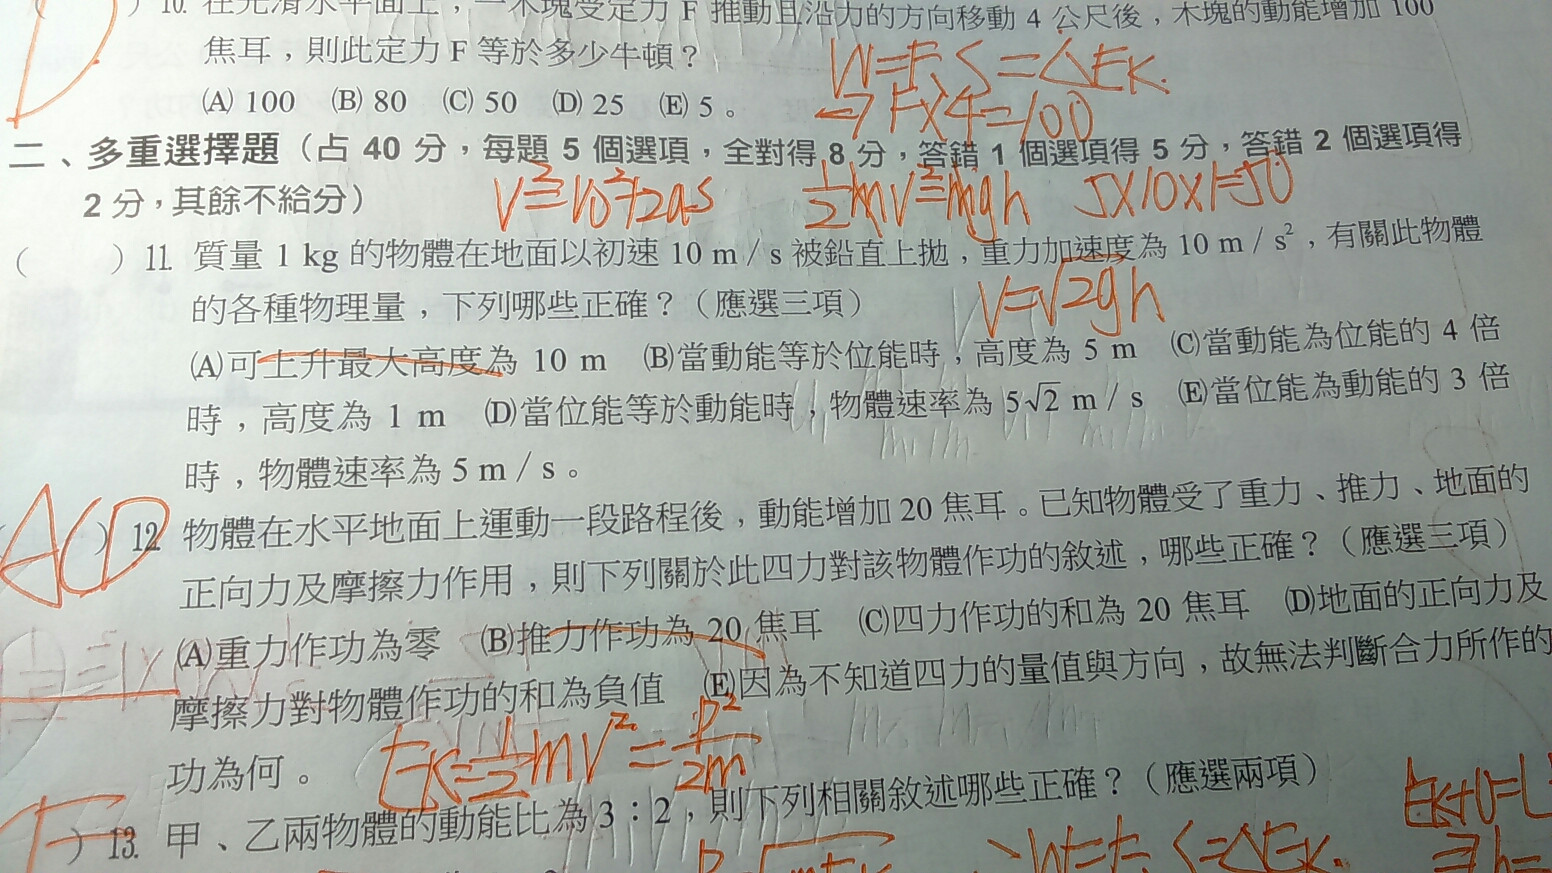 ) 10. 在光滑水平面上，一木塊受定力 F 推動且沿力的方向移動 4 公尺後，木塊的動能增加 100
D
焦耳，則此定力 F 等於多少牛頓？
W=F.S=△Ek.
(A) 100 (B) 80 (C) 50 (D) 25 (E) 5。
→F×4=100
二、多重選擇題（占 40 分，每題 5 個選項，全對得 8 分，答錯 1 個選項得 5 分，答錯 2 個選項得
2 分，其餘不給分）
V²=V0²+2as ½mV²=mgh 5×10×1=50
( ) 11. 質量 1 kg 的物體在地面以初速 10 m / s 被鉛直上拋，重力加速度為 10 m / s²，有關此物體
的各種物理量，下列哪些正確？（應選三項）
V=√2gh
(A)可上升最大高度為 10 m (B)當動能等於位能時，高度為 5 m (C)當動能為位能的 4 倍
時，高度為 1 m (D)當位能等於動能時，物體速率為 5√2 m / s (E)當位能為動能的 3 倍
時，物體速率為 5 m / s。
ACD
) 12. 物體在水平地面上運動一段路程後，動能增加 20 焦耳。已知物體受了重力、推力、地面的
正向力及摩擦力作用，則下列關於此四力對該物體作功的敘述，哪些正確？（應選三項）
(A)重力作功為零 (B)推力作功為 20 焦耳 (C)四力作功的和為 20 焦耳 (D)地面的正向力及
摩擦力對物體作功的和為負值 (E)因為不知道四力的量值與方向，故無法判斷合力所作的
功為何。
Ek=½mV²=P²/2m
) 13. 甲、乙兩物體的動能比為 3：2，則下列相關敘述哪些正確？（應選兩項）
W=F.S=△Ek.